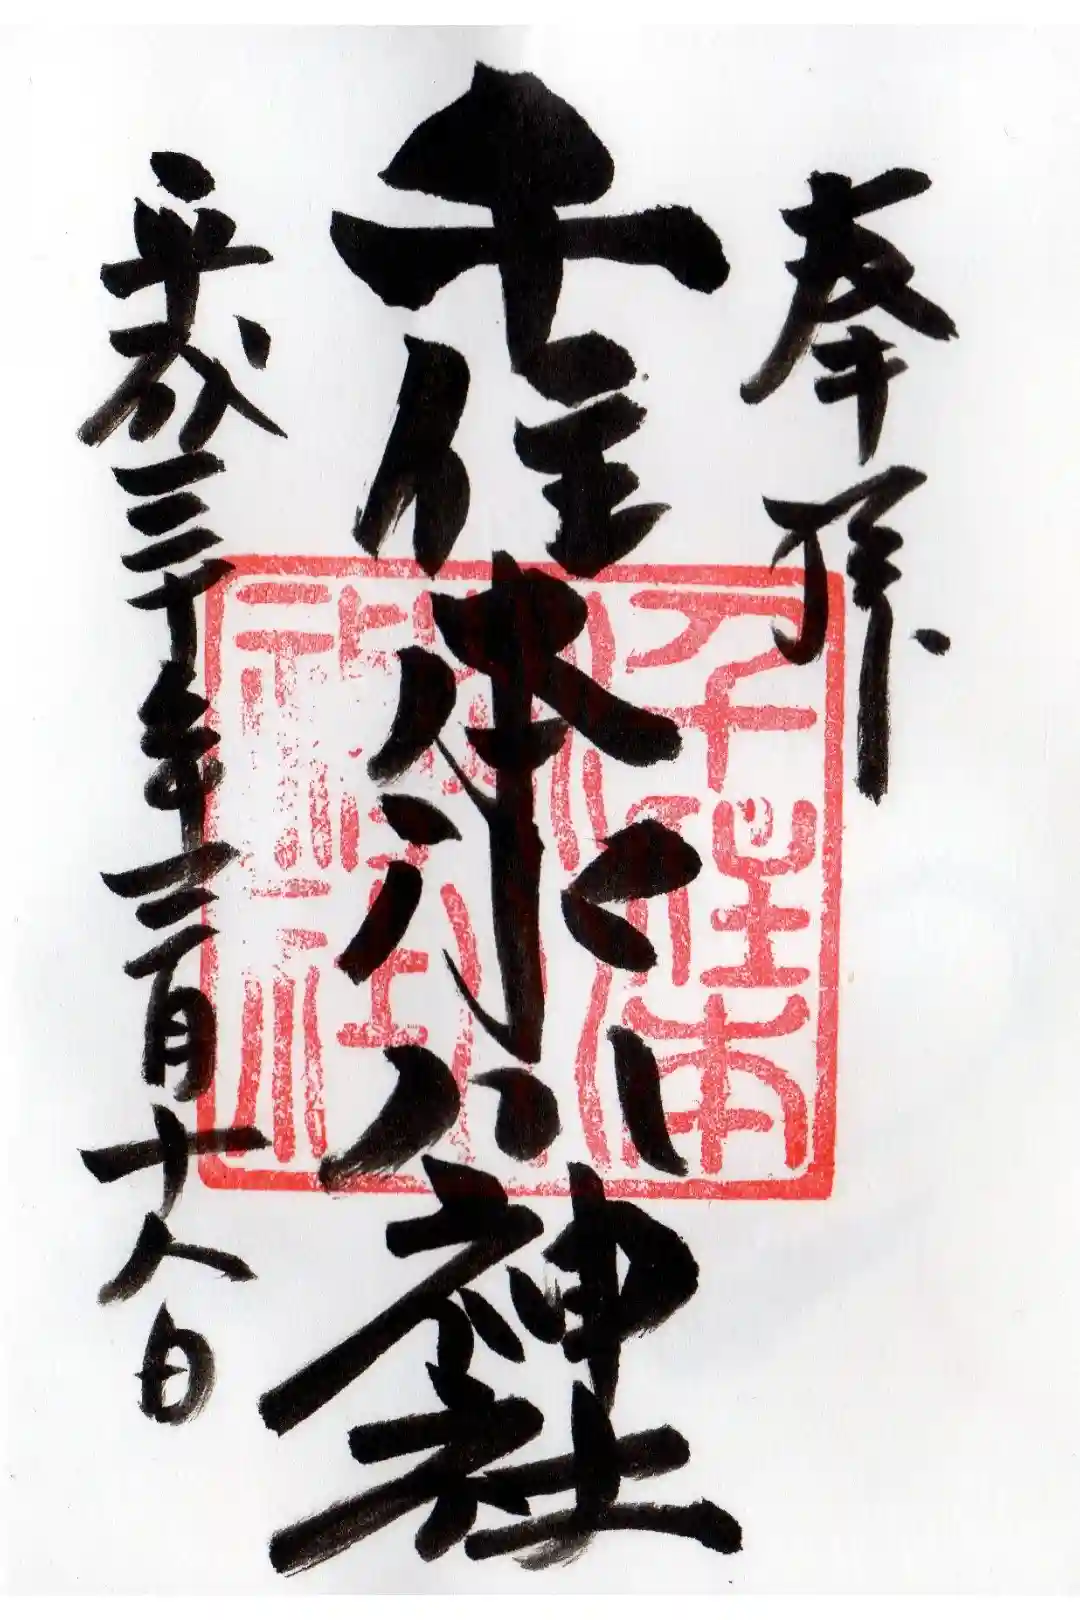 奉拝
千住本氷川神社
平成三十年三月十八日
千住本
氷川
神社